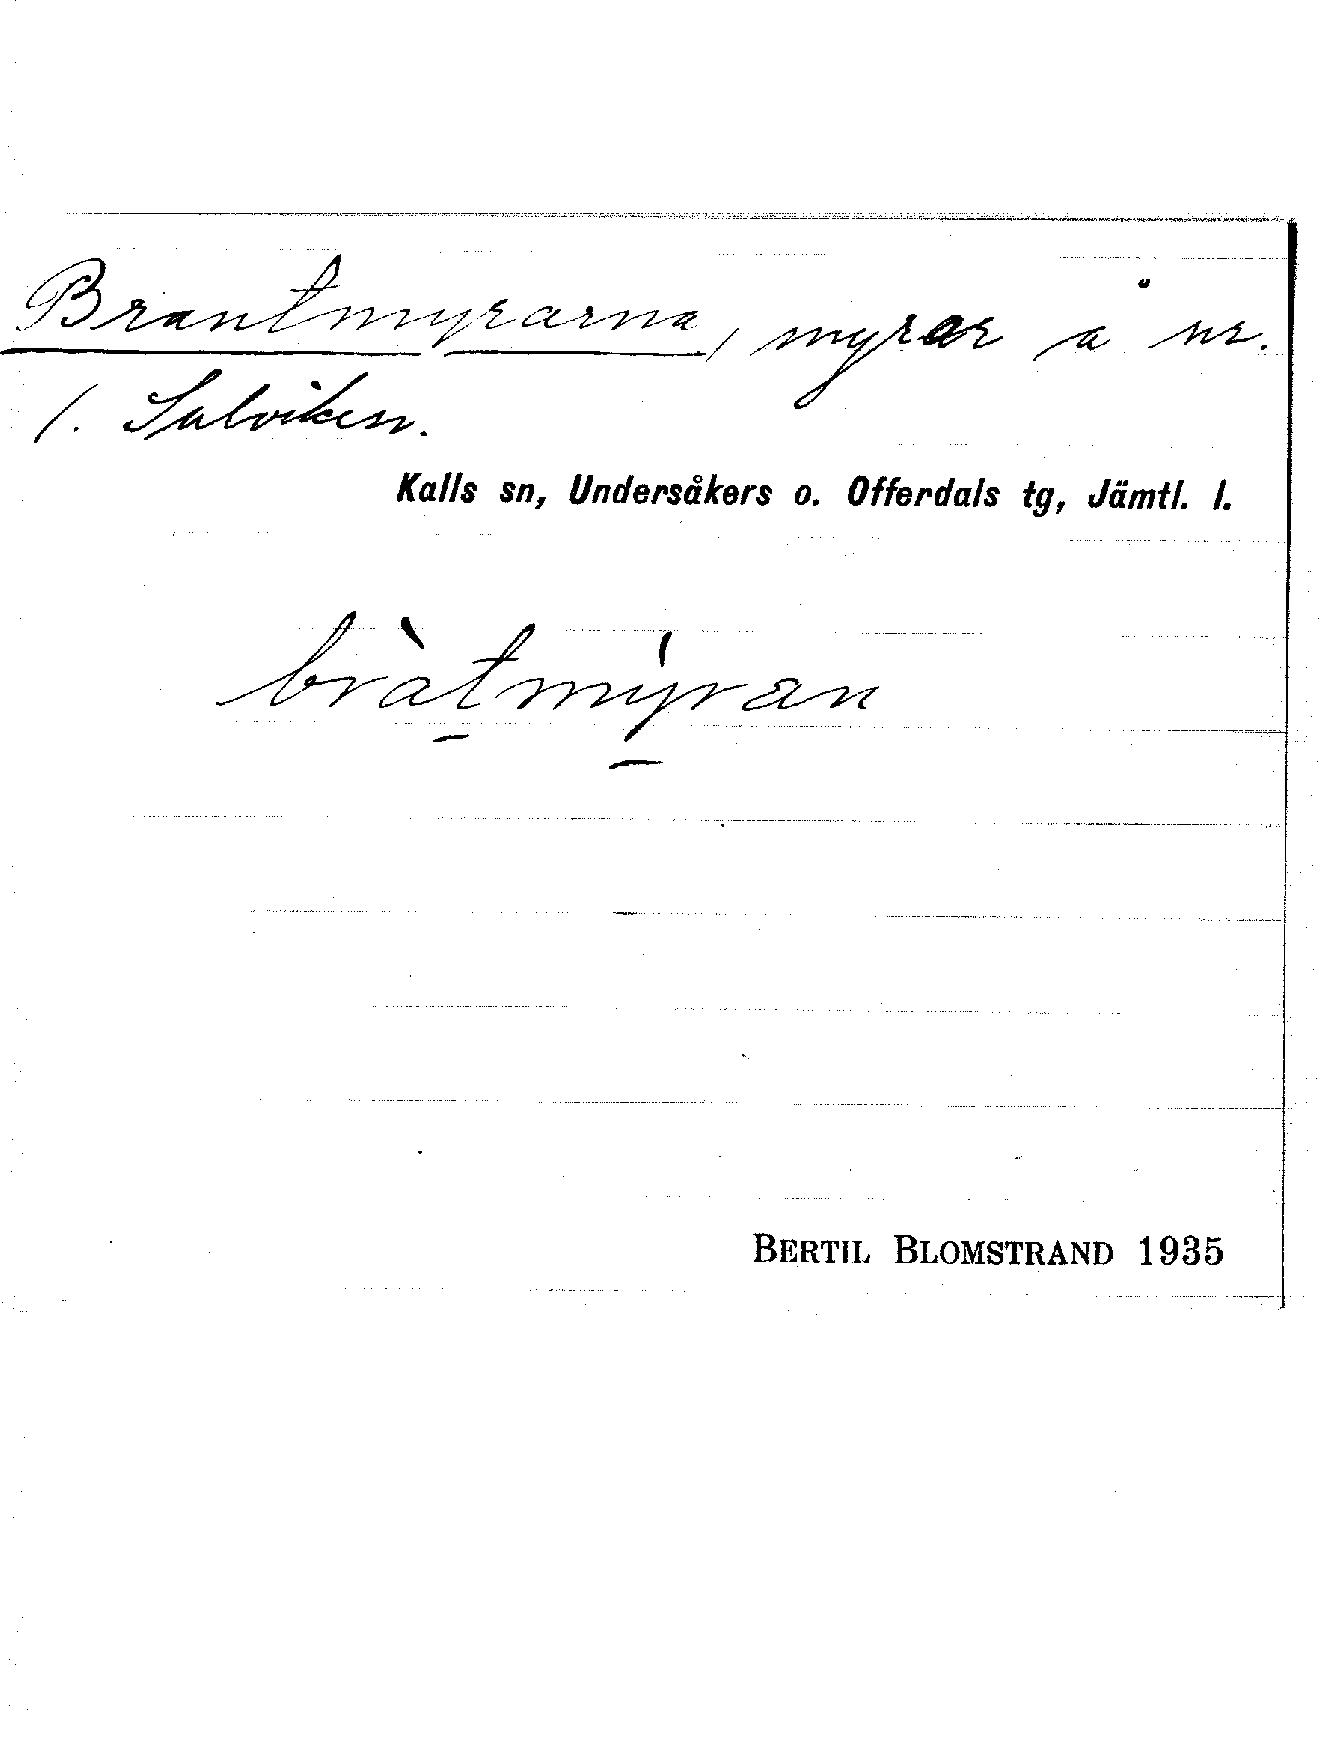 Brantmyrarna, myrar å nr.
1. Salviken.
Kalls sn, Undersåkers o. Offerdals tg, Jämtl. l.
bràt̠mý̠ran
BERTIL BLOMSTRAND 1935